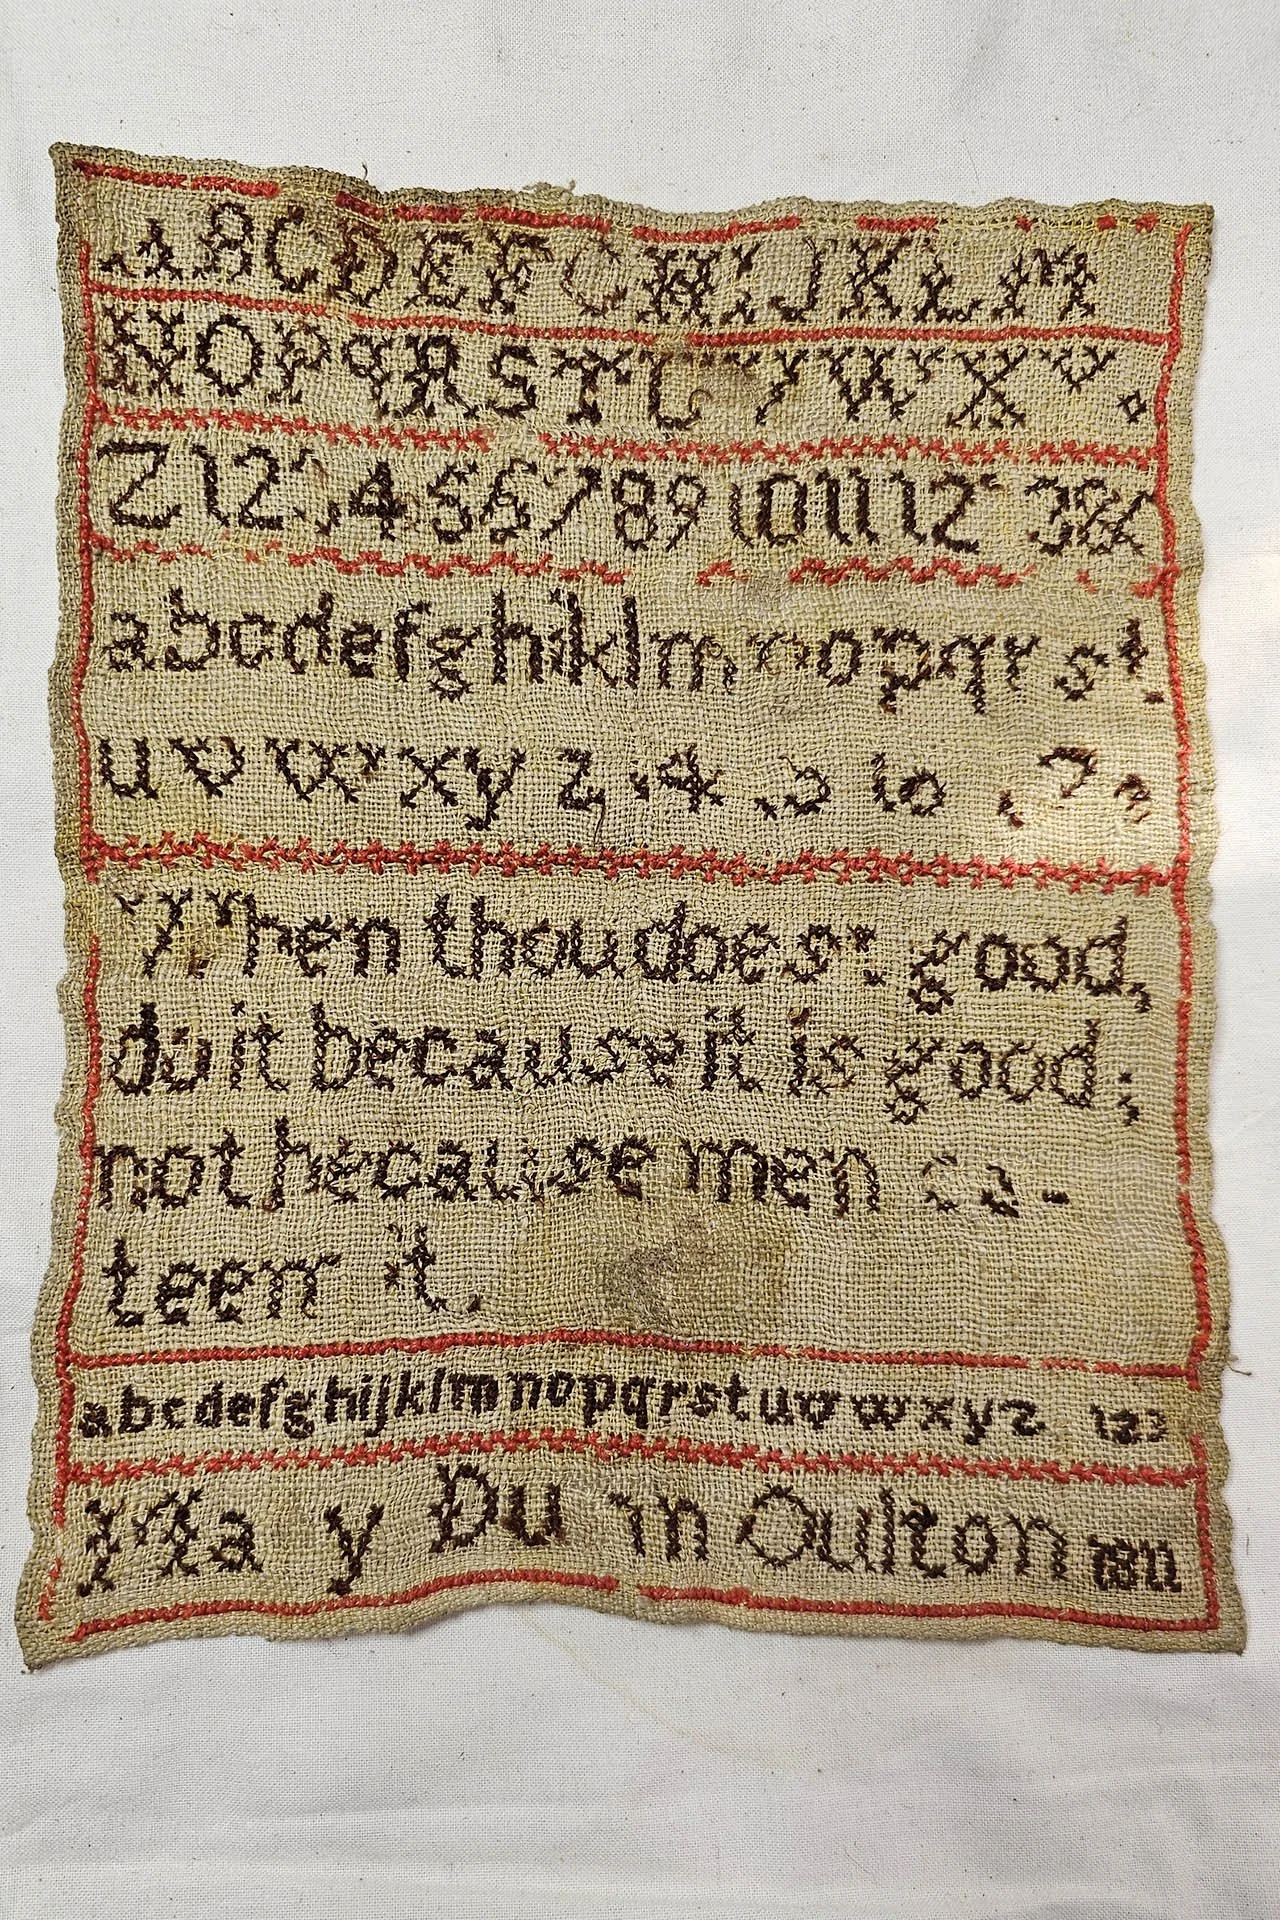 A A B C D E F G H I J K L M
N O P Q R S T U V W X Y .
Z 1 2 3 4 5 6 7 8 9 10 11 12 13 &
a b c d e f g h i k l m n o p q r s t
u v w x y z
When thou doest good,
do it because it is good;
not because men es-
teem it
a b c d e f g h i j k l m n o p q r s t u v w x y z 123
Oulton 1811